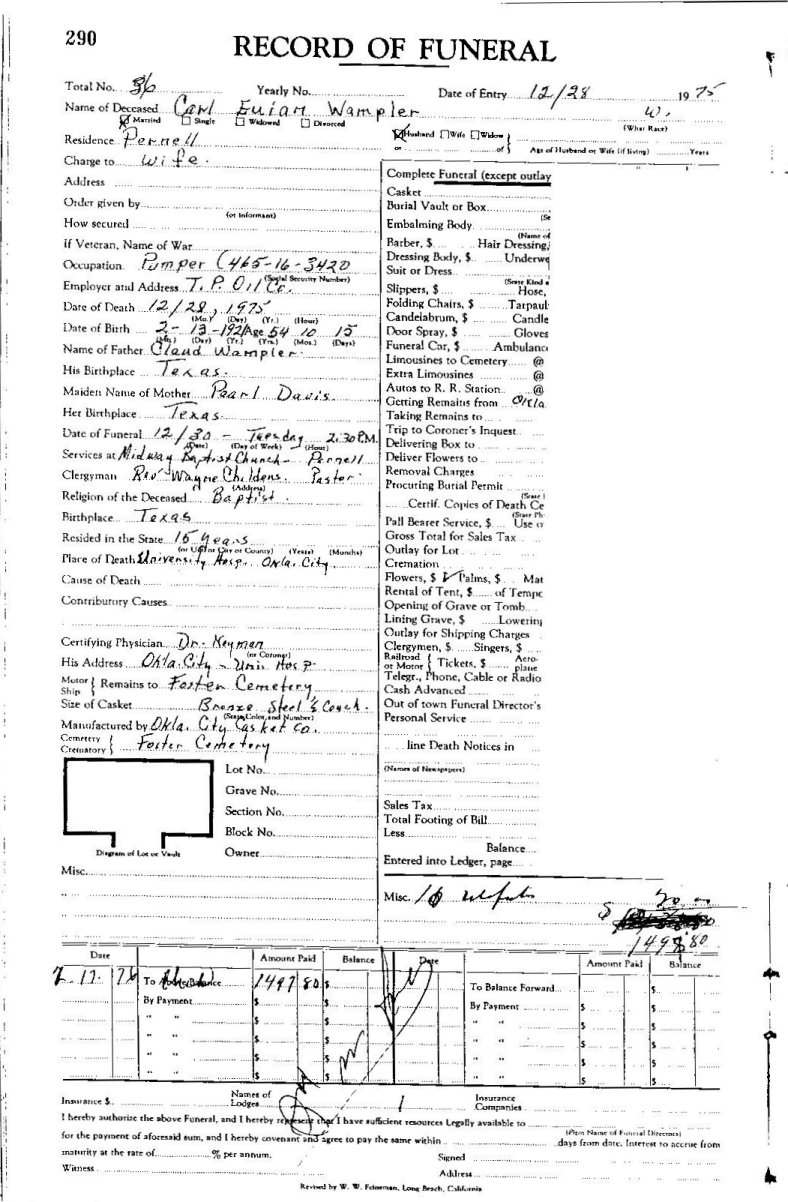 290
RECORD OF FUNERAL
Total No. 36 Yearly No. Date of Entry 12/28 1975
Name of Deceased Carl Euian Wampler W.
Married Single Widowed Divorced (What Race)
Husband Wife Widow
or of Age of Husband or Wife (if living) Years
Residence Pernell
Charge to Wife.
Address
Order given by
(or Informant)
How secured
If Veteran, Name of War
Occupation Pumper (465-16-3420
(Social Security Number)
Employer and Address T. P. Oil Co.
Date of Death 12/28, 1975
(Mo.) (Day) (Yr.) (Hour)
Date of Birth 2-13-1921 Age 54 10 15
(Mo.) (Day) (Yr.) (Yrs.) (Mos.) (Days)
Name of Father Claud Wampler.
His Birthplace Texas.
Maiden Name of Mother Pearl Davis
Her Birthplace Texas
Date of Funeral 12/30 - Tuesday 2:30 P.M.
(Date) (Day of Week) (Hour)
Services at Midway Baptist Church - Pernell
Clergyman Rev Wayne Childers. Pastor
(Address)
Religion of the Deceased Baptist.
Birthplace Texas
Resided in the State 15 years
(or City or County) (Years) (Months)
Place of Death University Hosp. Okla. City
Cause of Death
Contributory Causes
Certifying Physician Dr. Keyman
(or Coroner)
His Address Okla. City - Univ. Hosp.
Motor
Ship Remains to Foster Cemetery
Size of Casket Bronze Steel & Couch.
(State, Color, and Number)
Manufactured by Okla. City Casket Co.
Cemetery
Crematory Foster Cemetery
Lot No.
Grave No.
Section No.
Block No.
Owner
Diagram of Lot or Vault
Misc.
Complete Funeral (except outlay
Casket
Burial Vault or Box
(Se
Embalming Body
(Name of
Barber, $ Hair Dressing,
Dressing Body, $ Underwe
Suit or Dress
(State Kind a
Slippers, $ Hose,
Folding Chairs, $ Tarpaul
Candelabrum, $ Candle
Door Spray, $ Gloves
Funeral Car, $ Ambulanc
Limousines to Cemetery @
Extra Limousines @
Autos to R. R. Station @
Getting Remains from Okla
Taking Remains to
Trip to Coroner's Inquest
Delivering Box to
Deliver Flowers to
Removal Charges
Procuring Burial Permit
(State
Certif. Copies of Death Ce
(State Ph
Pall Bearer Service, $ Use o
Gross Total for Sales Tax
Outlay for Lot
Cremation
Flowers, $ Palms, $ Mat
Rental of Tent, $ of Tempe
Opening of Grave or Tomb
Lining Grave, $ Lowering
Outlay for Shipping Charges
Clergymen, $ Singers, $
Railroad
or Motor Tickets, $ Aero-
plane
Telegr., Phone, Cable or Radio
Cash Advanced
Out of town Funeral Director's
Personal Service
line Death Notices in
(Names of Newspapers)
Sales Tax
Total Footing of Bill
Less
Balance
Entered into Ledger, page
Misc.
$
1498 80
Date Amount Paid Balance Date Amount Paid Balance
2 17 76 To Balance 1497 80 $ To Balance Forward $
By Payment $ $ By Payment $ $
" " $ $ " " $ $
" " $ $ " " $ $
" " $ $ " " $ $
" " $ $ " " $ $
Insurance $ Names of
Lodges Insurance
Companies
I hereby authorize the above Funeral, and I hereby represent that I have sufficient resources Legally available to
(Firm Name of Funeral Directors)
for the payment of aforesaid sum, and I hereby covenant and agree to pay the same within days from date. Interest to accrue from
maturity at the rate of % per annum. Signed
Witness Address
Revised by W. W. Feineman, Long Beach, California